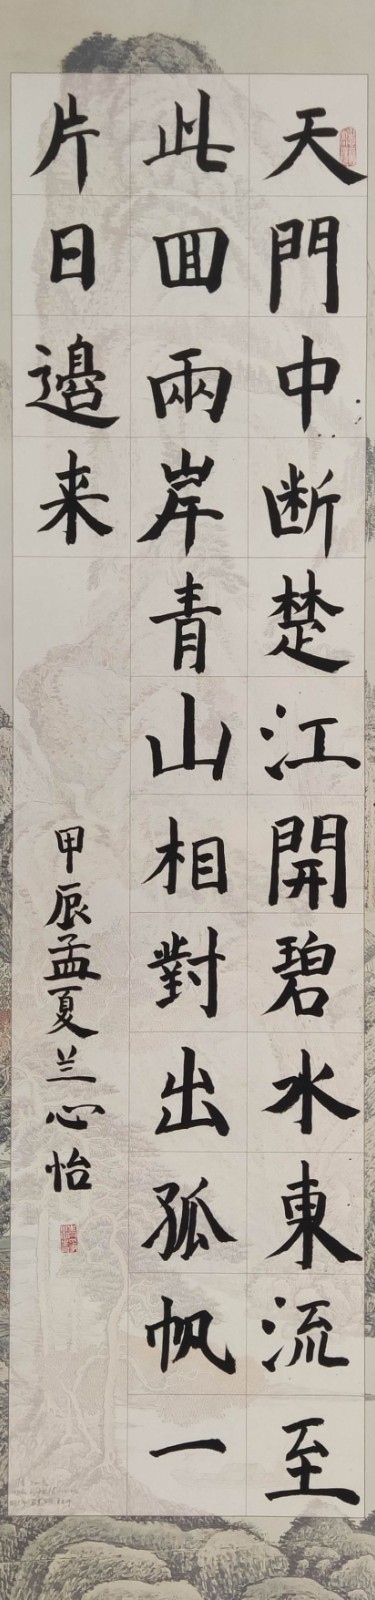 天門中断楚江開碧水東流至
此回兩岸青山相對出孤帆一
片日邊来
甲辰孟夏兰心怡